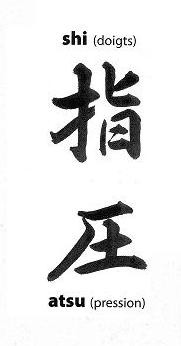 shi (doigts)
指
圧
atsu (pression)